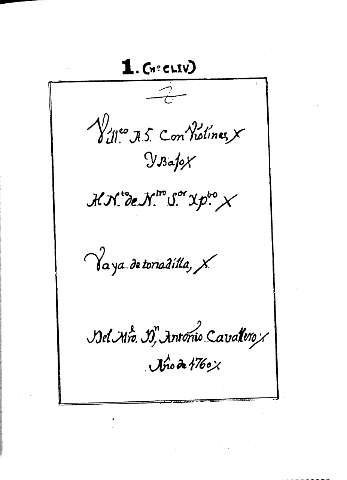 1. (nº CLIV)
Vill.co A 5. Con Violines,
Y Baxo
Al N.to de N.tro S.or Xpto
Vaya de tonadilla,
Del Mro. Dn Antonio Cavallero
Año de 1760